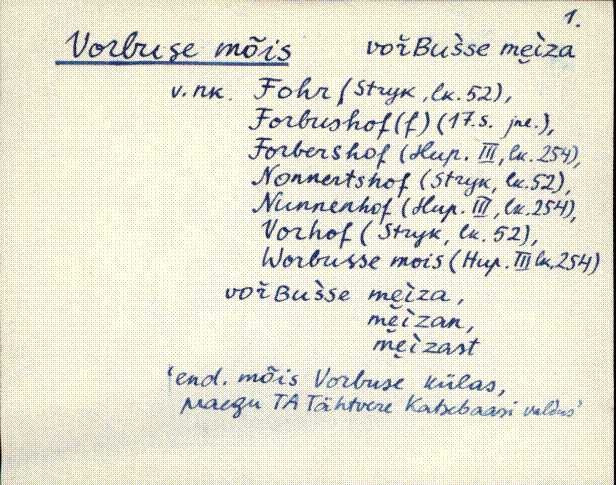 1.
Vorbuse mõis vořBùsse me̮ìza
v. nk. Fohr (Stryk, lk. 52),
Forbushof(f) (17.s. jne.),
Forbershof (Hup. III, lk. 254),
Nonnertshof (Stryk, lk. 52),
Nunnenhof (Hup. III, lk. 254),
Vorhof (Stryk, lk. 52),
Worbusse mois (Hup. III lk, 254)
vořBùsse me̮ìza,
me̮ìzan,
me̮ìzast
'end. mõis Vorbuse külas,
praegu TA Tähtvere Katsebaasi valdus'